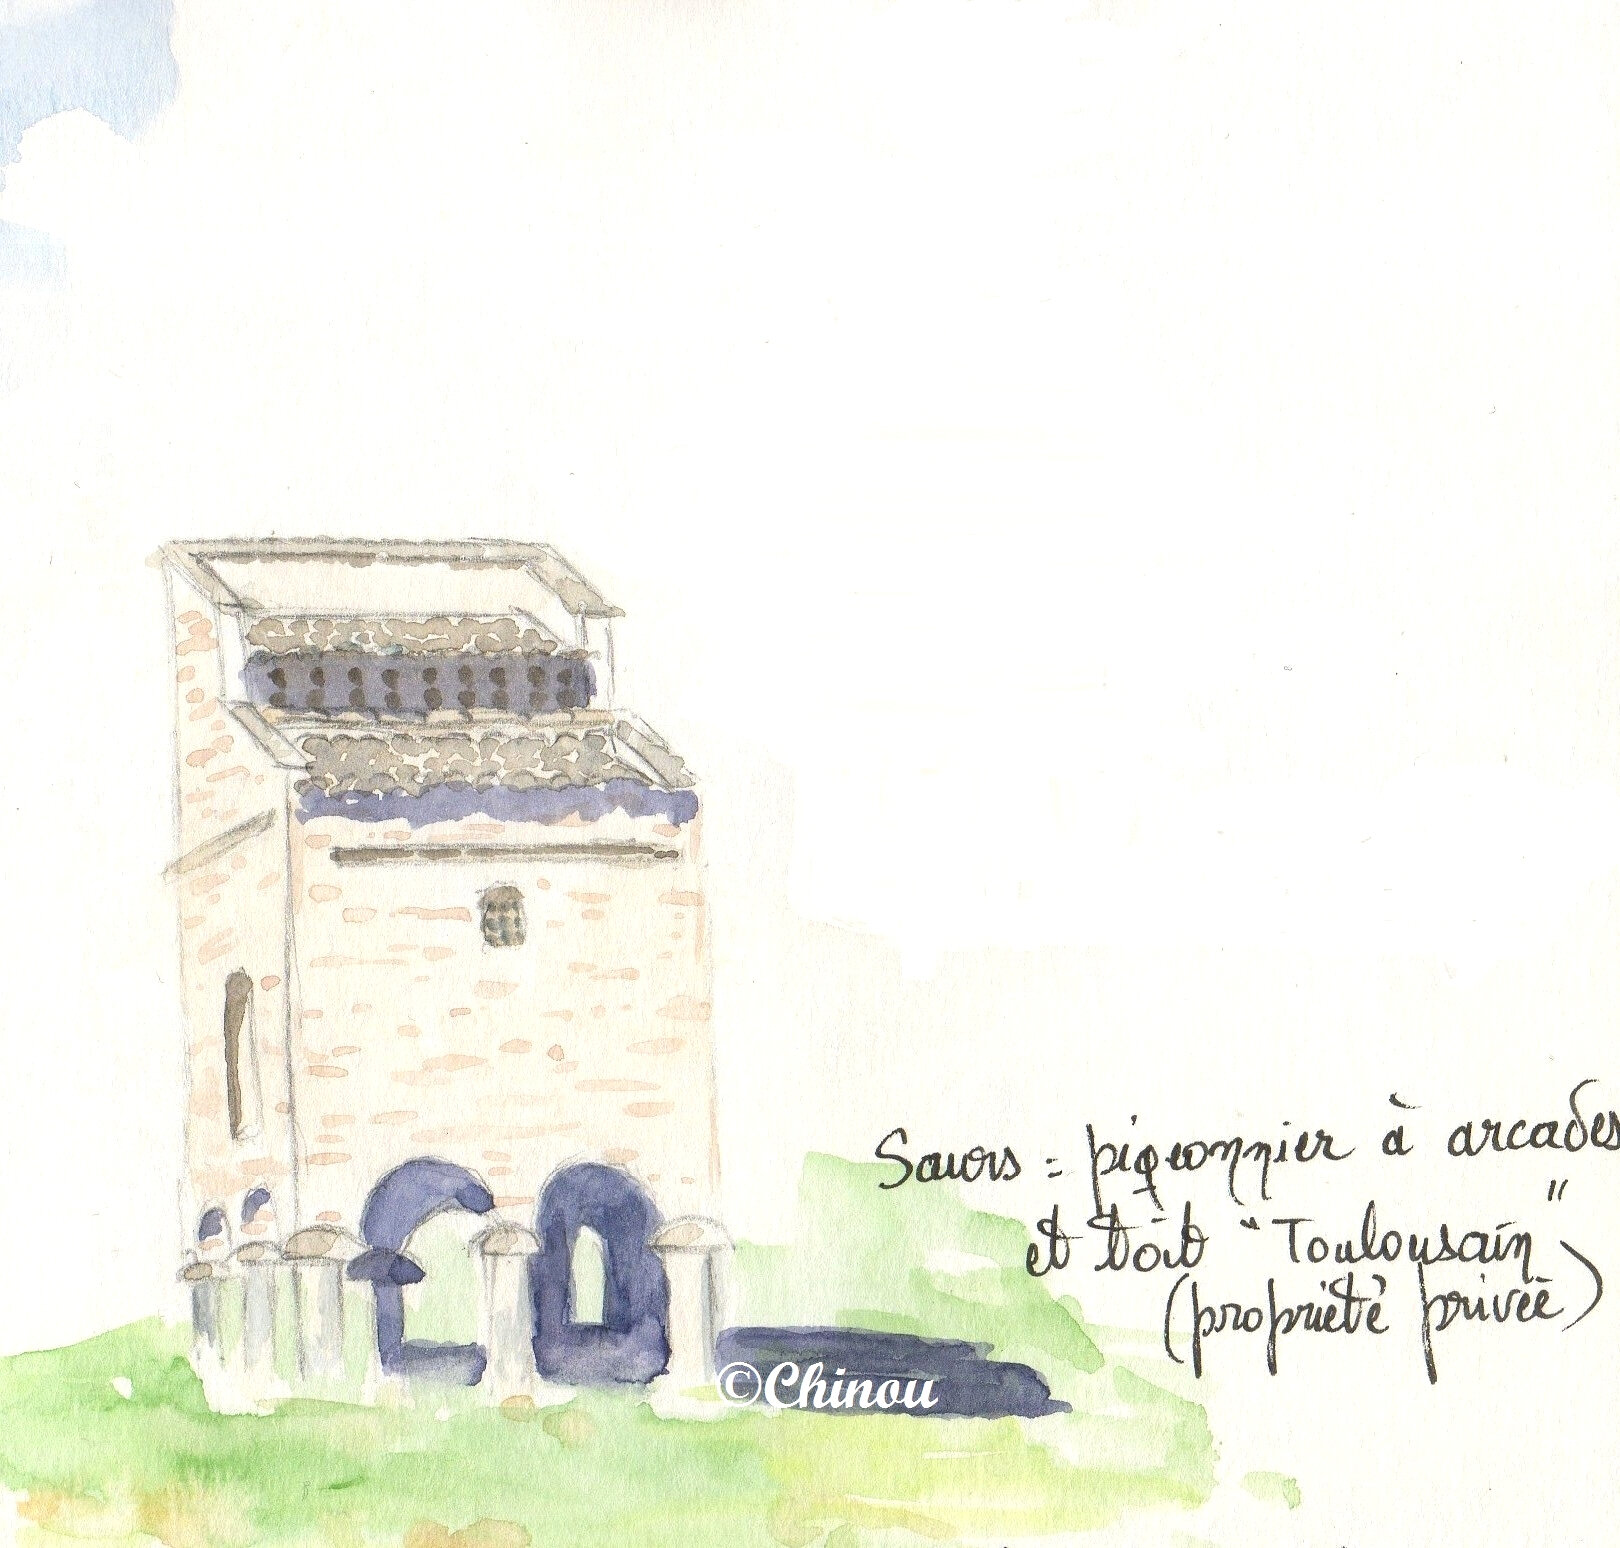 Saurs = pigeonnier à arcades
et toit "Toulousain"
(propriété privée)
©Chinou